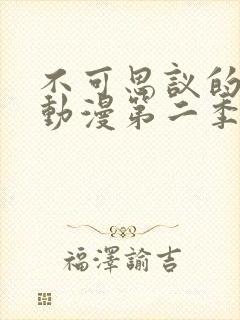 不可思议的
動漫第二季
福澤諭吉